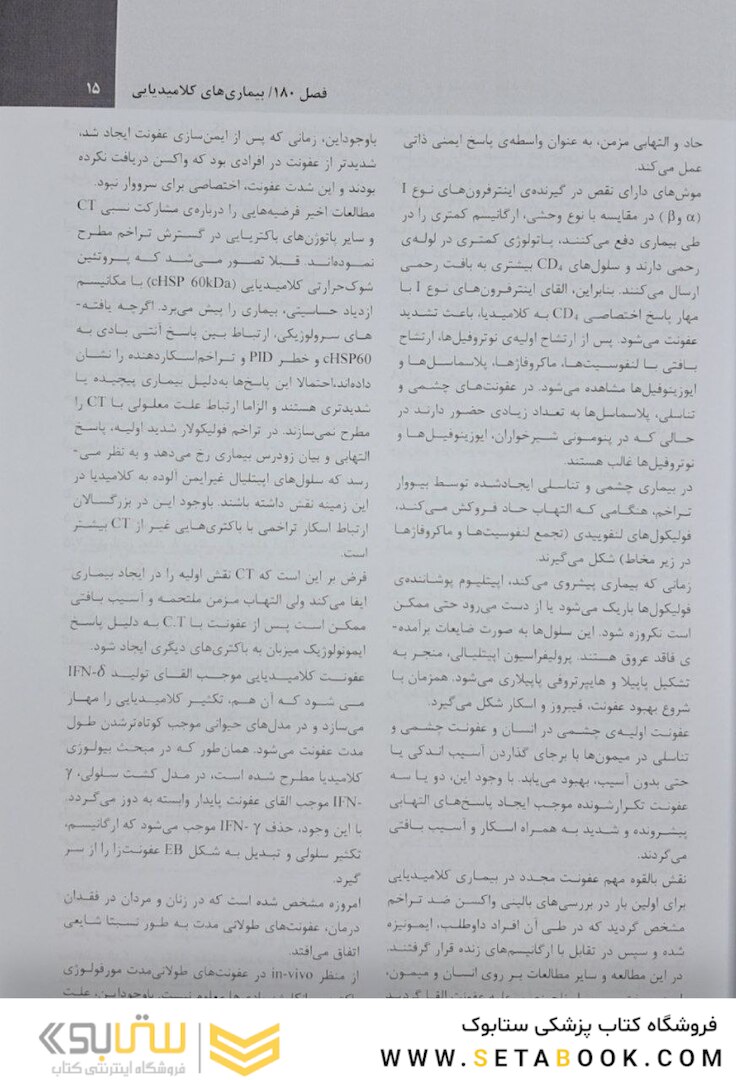 ۱۵
فصل ۱۸۰/ بیماری‌های کلامیدیایی
حاد و التهابی مزمن، به عنوان واسطه‌ی پاسخ ایمنی ذاتی
عمل می‌کند.
موش‌های دارای نقص در گیرنده‌ی اینترفرون‌های نوع I
(α و β) در مقایسه با نوع وحشی، ارگانیسم کمتری را در
طی بیماری دفع می‌کنند، پاتولوژی کمتری در لوله‌ی
رحمی دارند و سلول‌های CD₄ بیشتری به بافت رحمی
ارسال می‌کنند. بنابراین، القای اینترفرون‌های نوع I با
مهار پاسخ اختصاصی CD₄ به کلامیدیا، باعث تشدید
عفونت می‌شود. پس از ارتشاح اولیه‌ی نوتروفیل‌ها، ارتشاح
بافتی با لنفوسیت‌ها، ماکروفاژها، پلاسماسل‌ها و
ایوزینوفیل‌ها مشاهده می‌شود. در عفونت‌های چشمی و
تناسلی، پلاسماسل‌ها به تعداد زیادی حضور دارند در
حالی که در پنومونی شیرخواران، ایوزینوفیل‌ها و
نوتروفیل‌ها غالب هستند.
در بیماری چشمی و تناسلی ایجادشده توسط بیووار
تراخم، هنگامی که التهاب حاد فروکش می‌کند،
فولیکول‌های لنفوییدی (تجمع لنفوسیت‌ها و ماکروفاژها
در زیر مخاط) شکل می‌گیرند.
زمانی که بیماری پیشروی می‌کند، اپیتلیوم پوشاننده‌ی
فولیکول‌ها باریک می‌شود یا از دست می‌رود حتی ممکن
است نکروزه شود. این سلول‌ها به صورت ضایعات برآمده-
ی فاقد عروق هستند. پرولیفراسیون اپیتلیالی، منجر به
تشکیل پاپیلا و هایپرتروفی پاپیلاری می‌شود. همزمان با
شروع بهبود عفونت، فیبروز و اسکار شکل می‌گیرد.
عفونت اولیه‌ی چشمی در انسان و عفونت چشمی و
تناسلی در میمون‌ها با برجای گذاردن آسیب اندکی یا
حتی بدون آسیب، بهبود می‌یابد. با وجود این، دو یا سه
عفونت تکرارشونده موجب ایجاد پاسخ‌های التهابی
پیشرونده و شدید به همراه اسکار و آسیب بافتی
می‌گردند.
نقش بالقوه مهم عفونت مجدد در بیماری کلامیدیایی
برای اولین بار در بررسی‌های بالینی واکسن ضد تراخم
مشخص گردید که در طی آن افراد داوطلب، ایمونیزه
شده و سپس در تقابل با ارگانیسم‌های زنده قرار گرفتند.
در این مطالعه و سایر مطالعات بر روی انسان و میمون،
باوجوداین، زمانی که پس از ایمن‌سازی عفونت ایجاد شد،
شدیدتر از عفونت در افرادی بود که واکسن دریافت نکرده
بودند و این شدت عفونت، اختصاصی برای سرووار نبود.
مطالعات اخیر فرضیه‌هایی را درباره‌ی مشارکت نسبی CT
و سایر پاتوژن‌های باکتریایی در گسترش تراخم مطرح
نموده‌اند. قبلا تصور می‌شد که پروتئین
شوک‌حرارتی کلامیدیایی (cHSP 60kDa) با مکانیسم
ازدیاد حساسیتی، بیماری را پیش می‌برد. اگرچه یافته-
های سرولوژیکی، ارتباط بین پاسخ آنتی بادی به
cHSP60 و خطر PID و تراخم‌اسکاردهنده را نشان
داده‌اند،احتمالا این پاسخ‌ها به‌دلیل بیماری پیچیده یا
شدیدتری هستند و الزاما ارتباط علت معلولی با CT را
مطرح نمی‌سازند. در تراخم فولیکولار شدید اولیه، پاسخ
التهابی و بیان زودرس بیماری رخ می‌دهد و به نظر می-
رسد که سلول‌های اپیتلیال غیرایمن آلوده به کلامیدیا در
این زمینه نقش داشته باشند. باوجود این در بزرگسالان
ارتباط اسکار تراخمی با باکتری‌هایی غیر از CT بیشتر
است.
فرض بر این است که CT نقش اولیه را در ایجاد بیماری
ایفا می‌کند ولی التهاب مزمن ملتحمه و آسیب بافتی
ممکن است پس از عفونت با C.T به دلیل پاسخ
ایمونولوژیک میزبان به باکتری‌های دیگری ایجاد شود.
عفونت کلامیدیایی موجب القای تولید IFN-δ
می شود که آن هم، تکثیر کلامیدیایی را مهار
می‌سازد و در مدل‌های حیوانی موجب کوتاه‌ترشدن طول
مدت عفونت می‌شود. همان‌طور که در مبحث بیولوژی
کلامیدیا مطرح شده است، در مدل کشت سلولی، γ
-IFN موجب القای عفونت پایدار وابسته به دوز می‌گردد.
با این وجود، حذف IFN- γ موجب می‌شود که ارگانیسم،
تکثیر سلولی و تبدیل به شکل EB عفونت‌زا را از سر
گیرد.
امروزه مشخص شده است که در زنان و مردان در فقدان
درمان، عفونت‌های طولانی مدت به طور نسبتا شایعی
اتفاق می‌افتد.
از منظر in-vivo در عفونت‌های طولانی‌مدت مورفولوژی
فروشگاه کتاب پزشکی ستابوک
WWW.SETABOOK.COM
ستابوک
فروشگاه اینترنتی کتاب